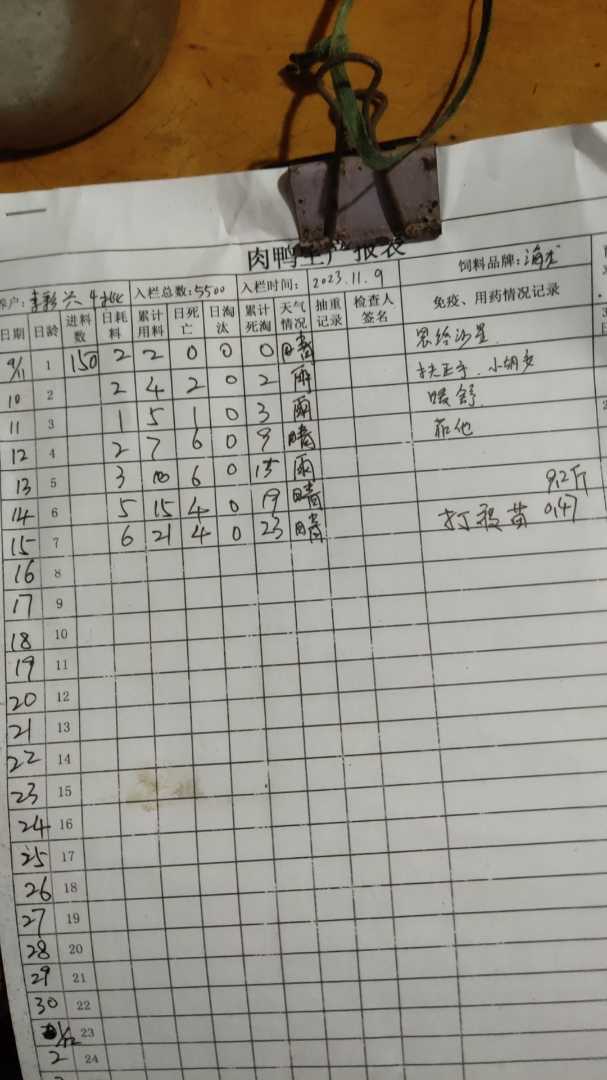 肉鸭生产报表
养户: 入栏总数:5500 入栏时间: 2023.11.9 饲料品牌:海龙
日期 日龄 进料数 日耗料 累计用料 日死亡 日淘汰 累计死淘 天气情况 抽重记录 检查人签名 免疫、用药情况记录
9/11 1 150 2 2 0 0 0 晴 恩给沙星
10 2 2 4 2 0 2 雨 扶正
11 3 1 5 1 0 3 雨 暖舒
12 4 2 7 6 0 9 晴
13 5 3 10 6 0 15 雨
14 6 5 15 4 0 19 晴 9.2斤
15 7 6 21 4 0 23 晴 打疫苗 0.47
16 8
17 9
18 10
19 11
20 12
21 13
22 14
23 15
24 16
25 17
26 18
27 19
28 20
29 21
30 22
1/12 23
2 24